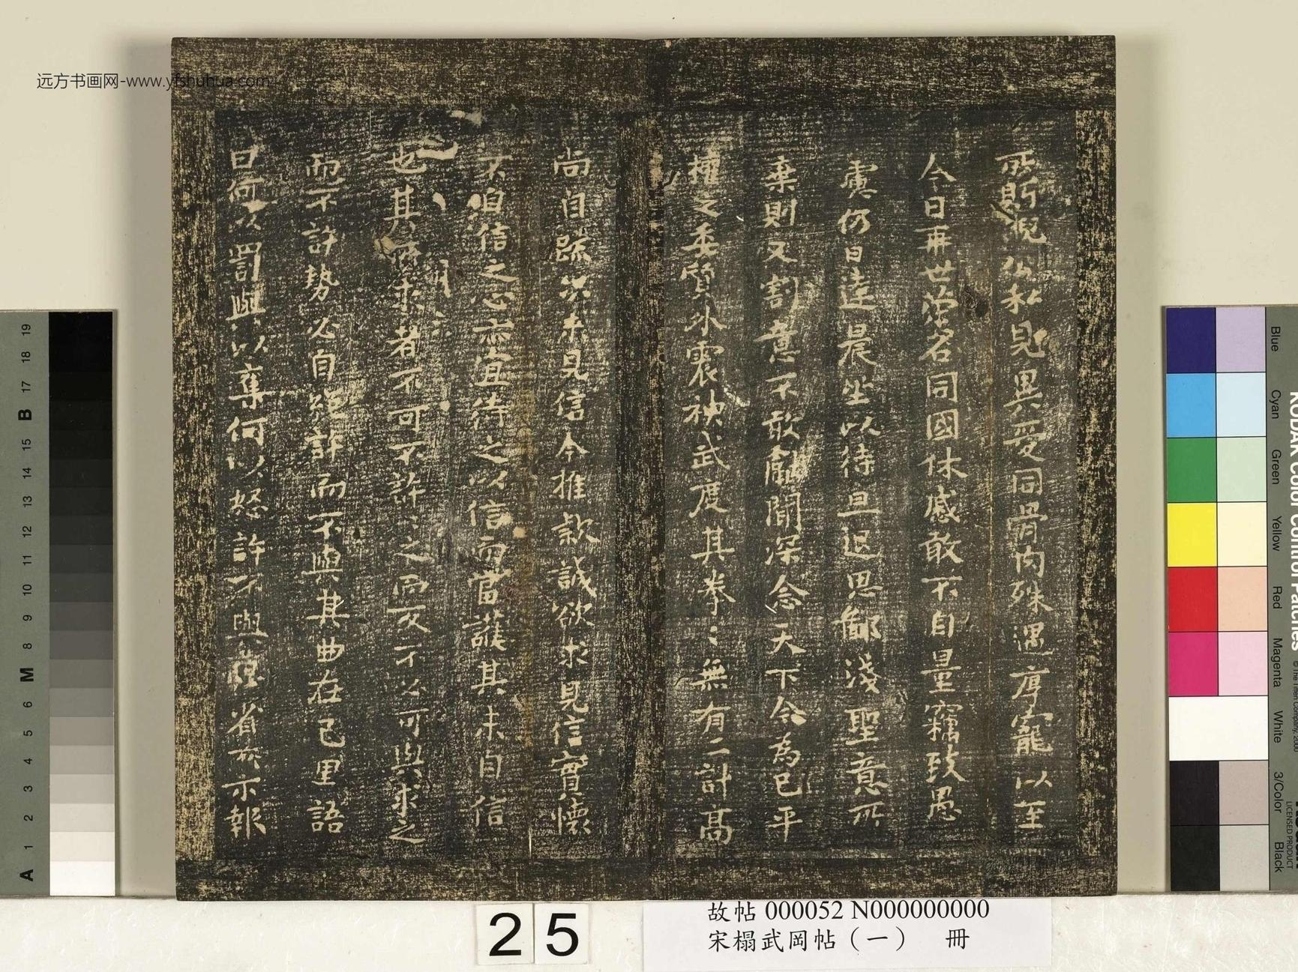 所盱睨公私見異愛同骨肉殊遇厚寵以至
今日再世榮名同國休慼敢不自量竊致愚
慮仍日達晨坐以待旦退思鄙淺聖意所
棄則又割意不敢獻聞深念天下今為已平
權之委質外震神武度其拳〻無有二計高
尚自疏况未見信今推款誠欲求見信實懷
不自信之心亦宜待之以信而當護其未自信
也其所求者不可不許〻之而反不必可與求之
而不許勢必自絕許而不與其曲在己里語
曰何以罰與以奪何以怒許不與思省所示報
远方书画网-www.yfshuhua.com
19
18
17
B
15
14
13
12
11
10
9
8
M
6
5
4
3
2
1
A
Blue
Cyan
Green
Yellow
Red
Magenta
White
3/Color
Black
KODAK Color Control Patches
LICENSED PRODUCT
25
故帖 000052 N000000000
宋榻武岡帖（一） 冊